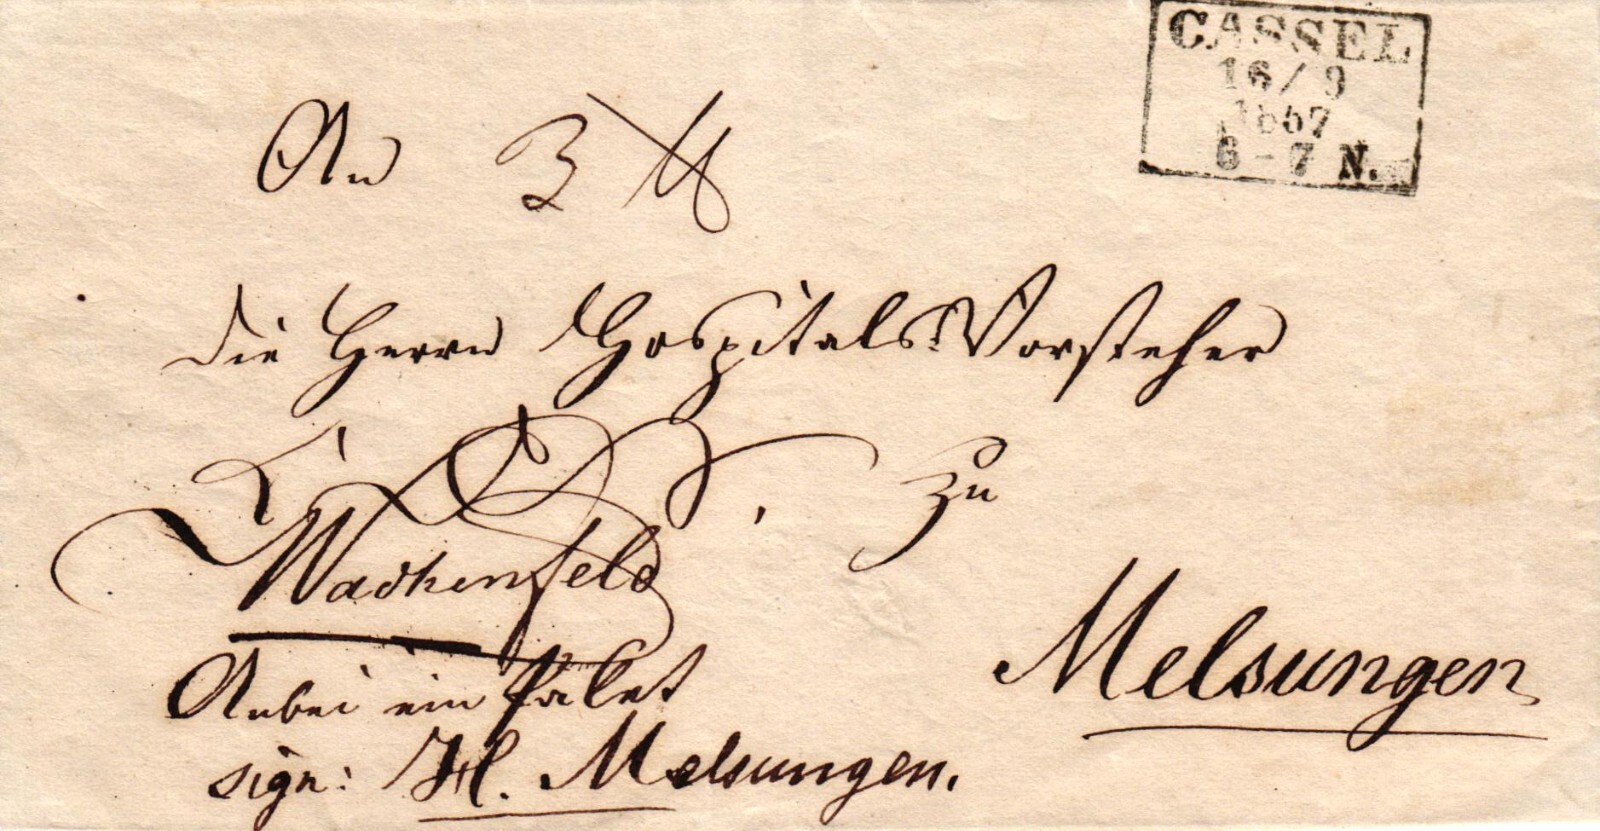 CASSEL
16/9
1857
6-7 N.
An 3 ℔
die Herrn Hospitals-Vorsteher
Wachenfeld
zu
Melsungen
Anbei ein Paket
sign: H. Melsungen.